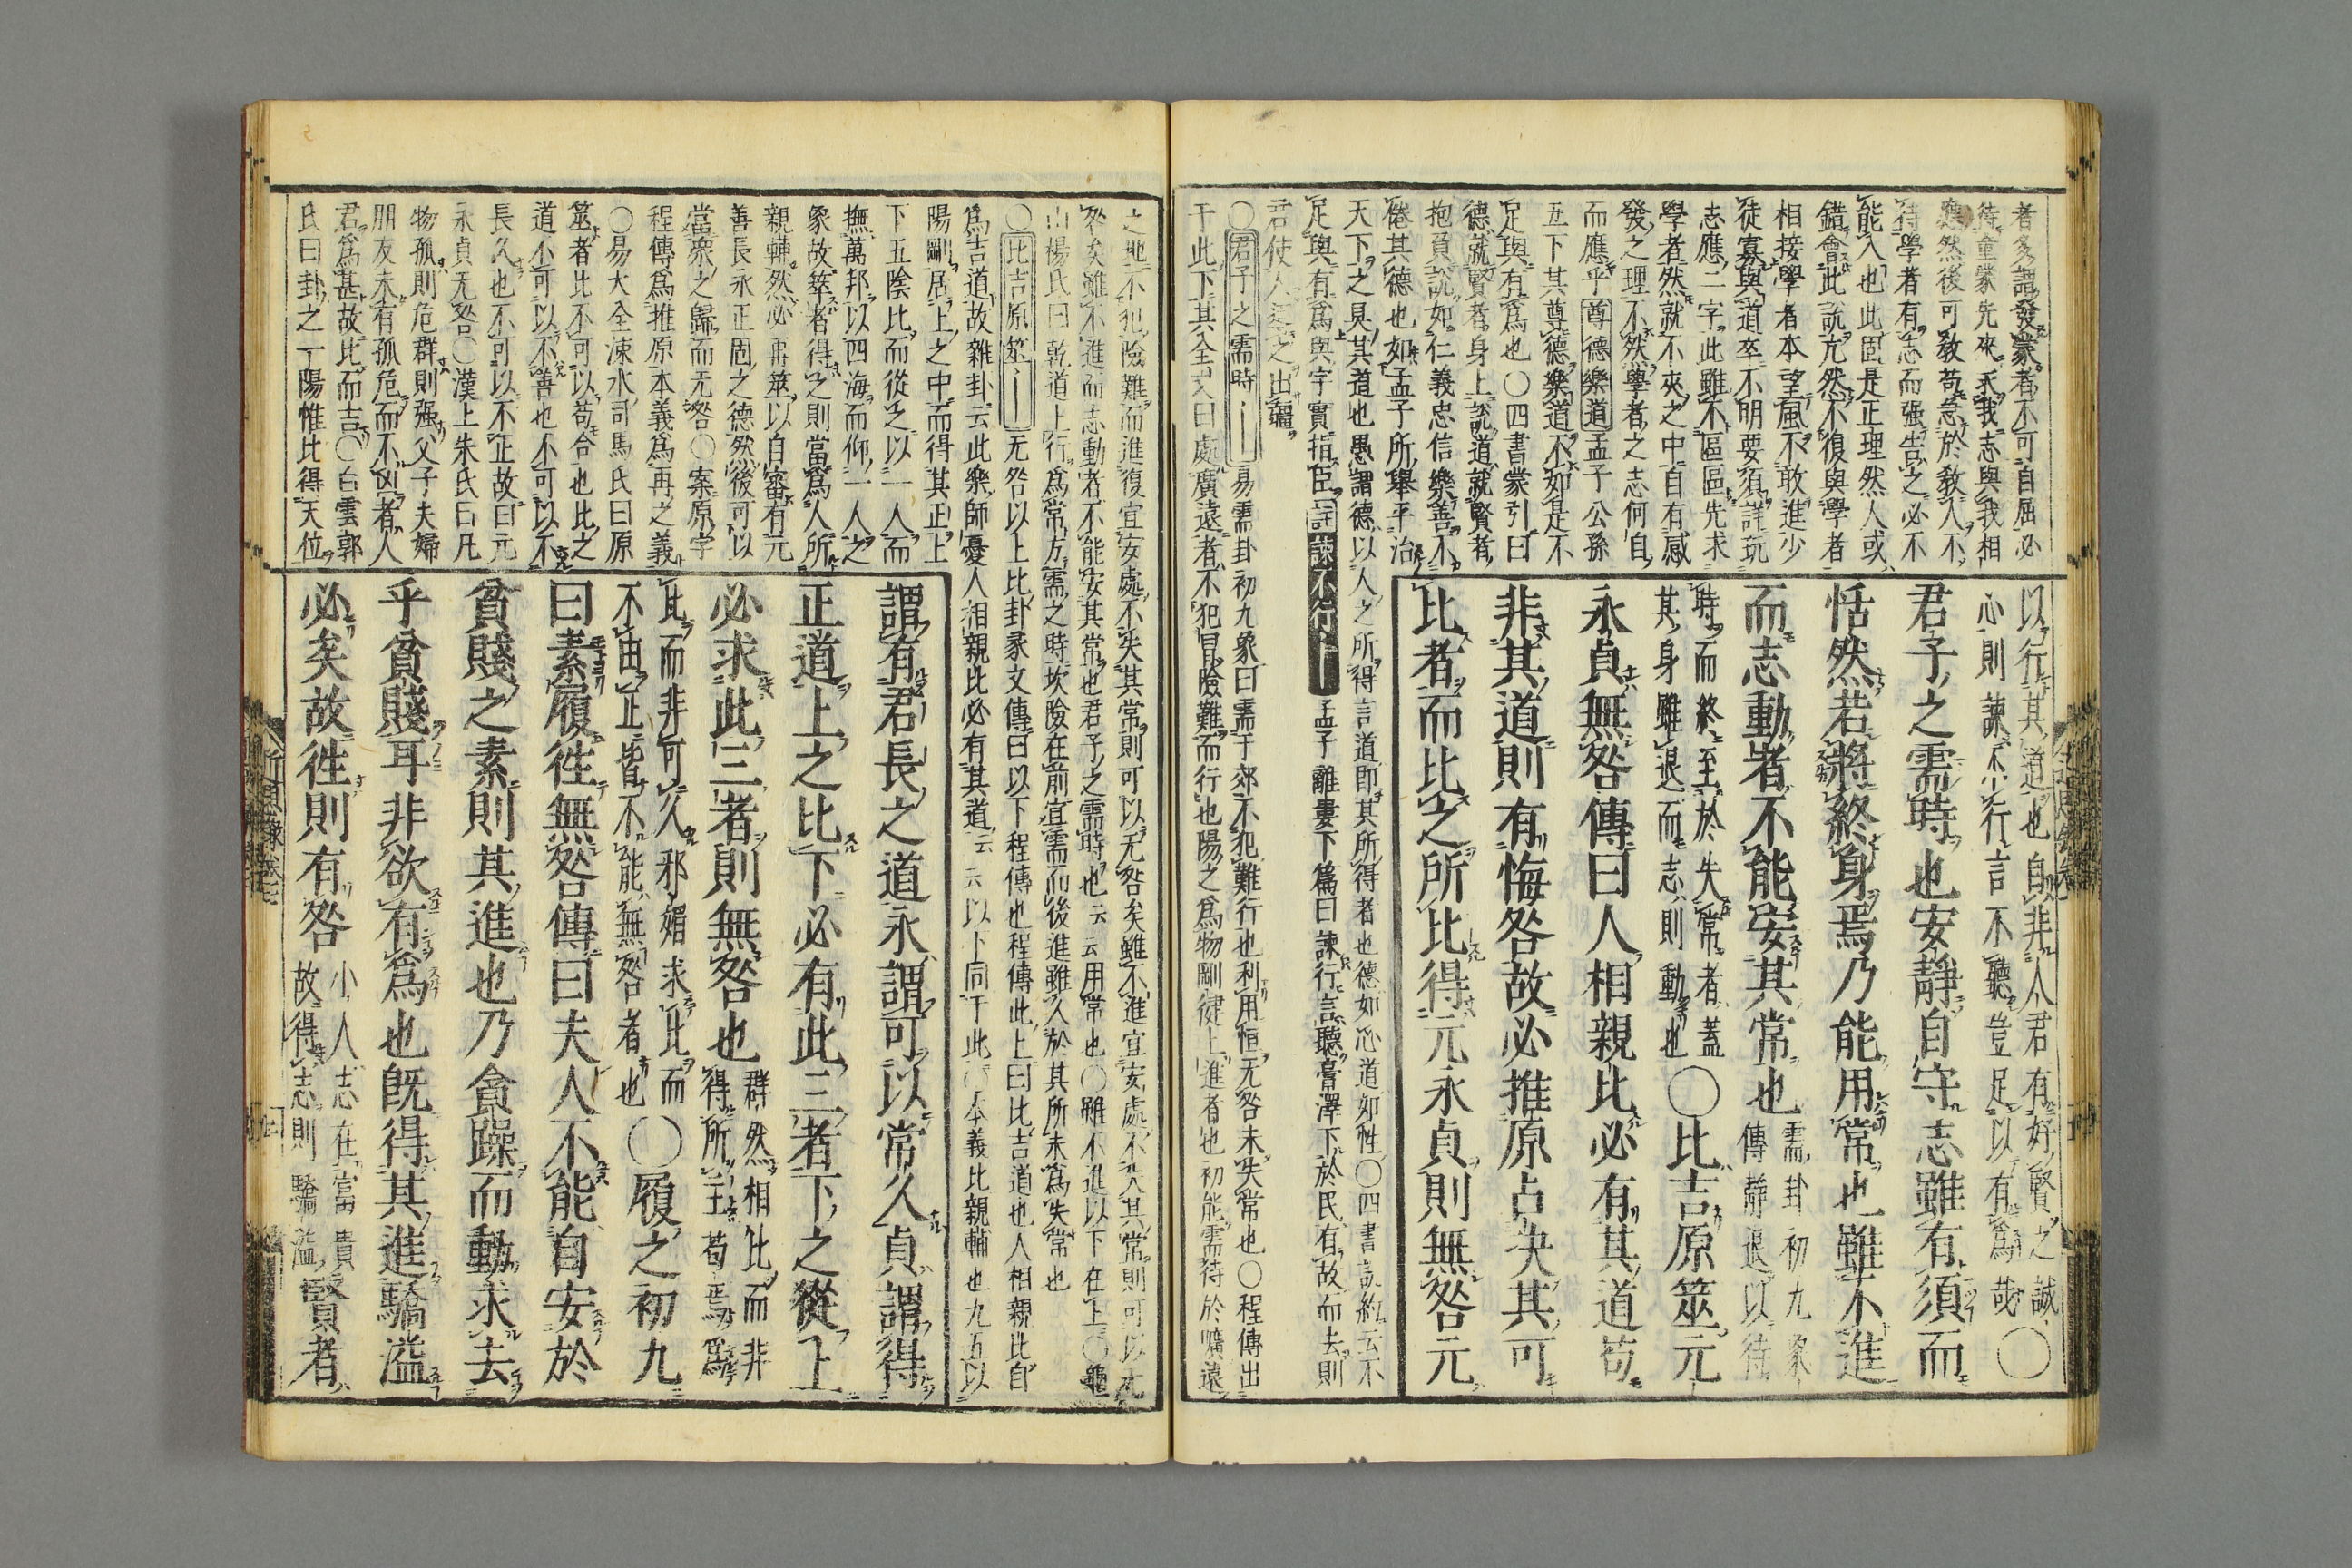 者多謂發蒙者不可自屈必
待童蒙先來求我志與我相
應然後可敎苟急於敎人不
待學者有志而强告之必不
能入也此固是正理然人或
錯會此說亢然不復與學者
相接學者本望風不敢進少
徒寡與道卒不明要須詳玩
志應二字此雖不區區先求
學者然就不來之中自有感
發之理不然學者之志何自
而應乎尊德樂道孟子公孫
丑下其尊德樂道不如是不
足與有爲也〇四書蒙引曰
德就賢者身上說道就賢者
抱負說如仁義忠信樂善不
倦其德也如孟子所舉平治
天下之具其道也愚謂德以人之所得言道即其所得者也德如心道如性〇四書說約云不
足與有爲與字實指臣言諫不行孟子離婁下篇曰諫行言聽膏澤下於民有故而去則
君使人導之出疆
〇君子之需時易需卦初九象曰需于郊不犯難行也利用恒无咎未失常也〇程傳出
于此下其全文曰處廣遠者不犯冒險難而行也陽之爲物剛健上進者也初能需待於曠遠
以行其道也自非人君有好賢之誠
心則諫不行言不聽豈足以有爲哉〇
君子之需時也安靜自守志雖有須而
恬然若將終身焉乃能用常也雖不進
而志動者不能安其常也需卦初九象
傳靜退以待
時而終至於失常者蓋
其身雖退而志則動也〇比吉原筮元
永貞無咎傳曰人相親比必有其道苟
非其道則有悔咎故必推原占決其可
比者而比之所比得元永貞則無咎元
之地不犯險難而進復宜安處不失其常則可以无咎矣雖不進宜安處不失其常則可以无
咎矣雖不進而志動者不能安其常也君子之需時也云云用常也〇雖不進以下在上〇龜
山楊氏曰乾道上行爲常方需之時坎險在前宜需而後進雖久於其所未爲失常也
〇比吉原筮无咎以上比卦彖文傳曰以下程傳也程傳此上曰比吉道也人相親比自
爲吉道故雜卦云比樂師憂人相親比必有其道云云以下同于此〇本義比親輔也九五以
陽剛居上之中而得其正上
下五陰比而從之以一人而
撫萬邦以四海而仰一人之
象故筮者得之則當爲人所
親輔然必再筮以自審有元
善長永正固之德然後可以
當衆之歸而无咎〇案原字
程傳爲推原本義爲再之義
〇易大全涑水司馬氏曰原
筮者比不可以苟合也比之
道不可以不善也不可以不
長久也不可以不正故曰元
永貞无咎〇漢上朱氏曰凡
物孤則危群則强父子夫婦
朋友未有孤危而不凶者人
君爲甚故比而吉〇白雲郭
氏曰卦之一陽惟比得天位
謂有君長之道永謂可以常久貞謂得
正道上之比下必有此三者下之從上
必求此三者則無咎也群然相比而非
得所主苟焉爲
比而非可久邪媚求比而
不由正皆不能無咎者也〇履之初九
曰素履徃無咎傳曰夫人不能自安於
貧賤之素則其進也乃貪躁而動求去
乎貧賤耳非欲有爲也旣得其進驕溢
必矣故徃則有咎小人志在富貴
故得志則驕溢賢者